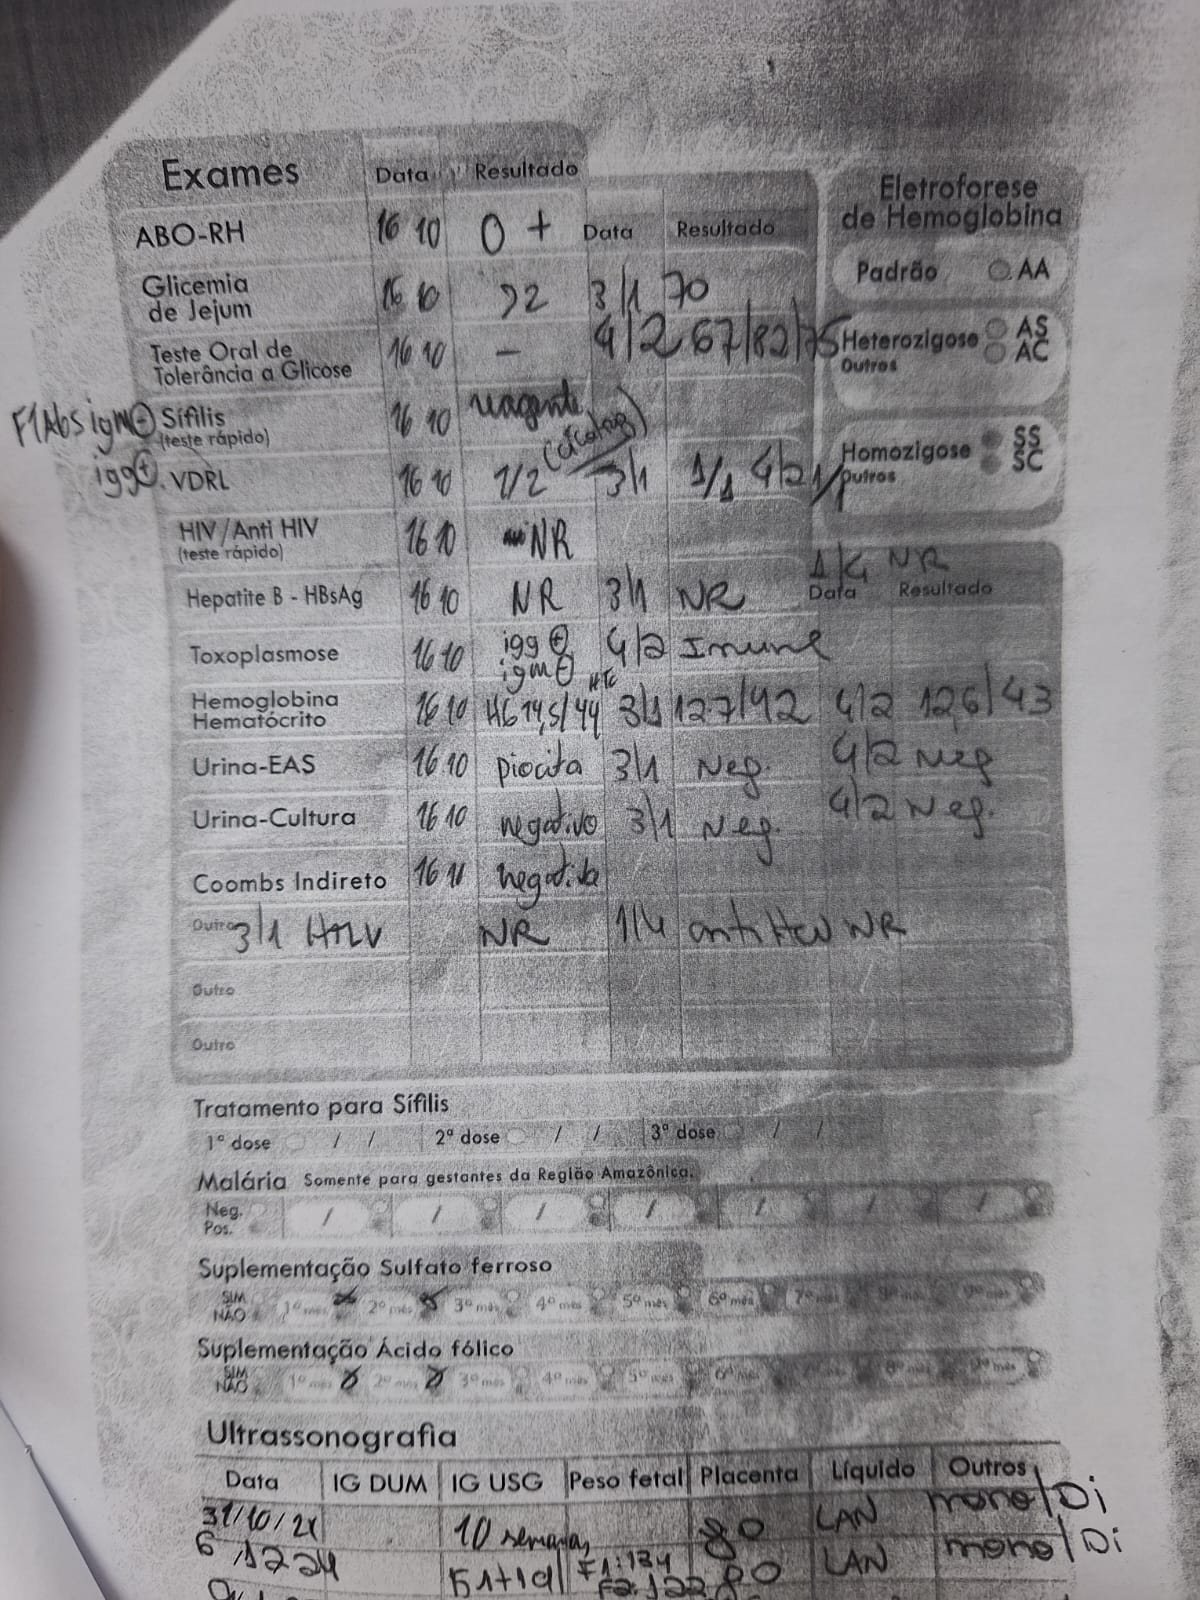 Exames Data Resultado
ABO-RH 16 10 O + Data Resultado
Glicemia de Jejum 16 10 92 3/1 70
Teste Oral de Tolerância a Glicose 16 10 — 4/2 67/82/75
FTAbs igm⊖ Sífilis (teste rápido) 16 10 reagente
igg⊕ VDRL 16 10 1/2 3/1 1/1 4/2 1/1
HIV/Anti HIV (teste rápido) 16 10 NR
1/4 NR
Hepatite B - HBsAg 16 10 NR 3/1 NR Data Resultado
Toxoplasmose 16 10 igg⊕ igm⊖ 4/2 Imune
Hemoglobina Hematócrito 16 10 HG 14,5/44 HTC 3/1 127/42 4/2 12,6/43
Urina-EAS 16 10 piocita 3/1 Neg. 4/2 Neg
Urina-Cultura 16 10 negativo 3/1 Neg. 4/2 Neg.
Coombs Indireto 16 negativo
Outro 3/1 HTLV NR 1/4 anti Hcv NR
Outro
Outro
Eletroforese
de Hemoglobina
Padrão AA
Heterozigose AS AC
Outros
Homozigose SS SC
Outros
Tratamento para Sífilis
1º dose / / 2º dose / / 3º dose / /
Malária Somente para gestantes da Região Amazônica.
Neg. / / / / / / /
Pos.
Suplementação Sulfato ferroso
SIM NÃO 1º mês 2º mês 3º mês 4º mês 5º mês 6º mês 7º mês 8º mês 9º mês
Suplementação Ácido fólico
SIM NÃO 1º mês 2º mês 3º mês 4º mês 5º mês 6º mês 8º mês 9º mês
Ultrassonografia
Data IG DUM IG USG Peso fetal Placenta Líquido Outros
31/10/24 10 semanas LAN mono/Di
6/12 24 15+1d F1:134 F2:122 LAN mono/Di